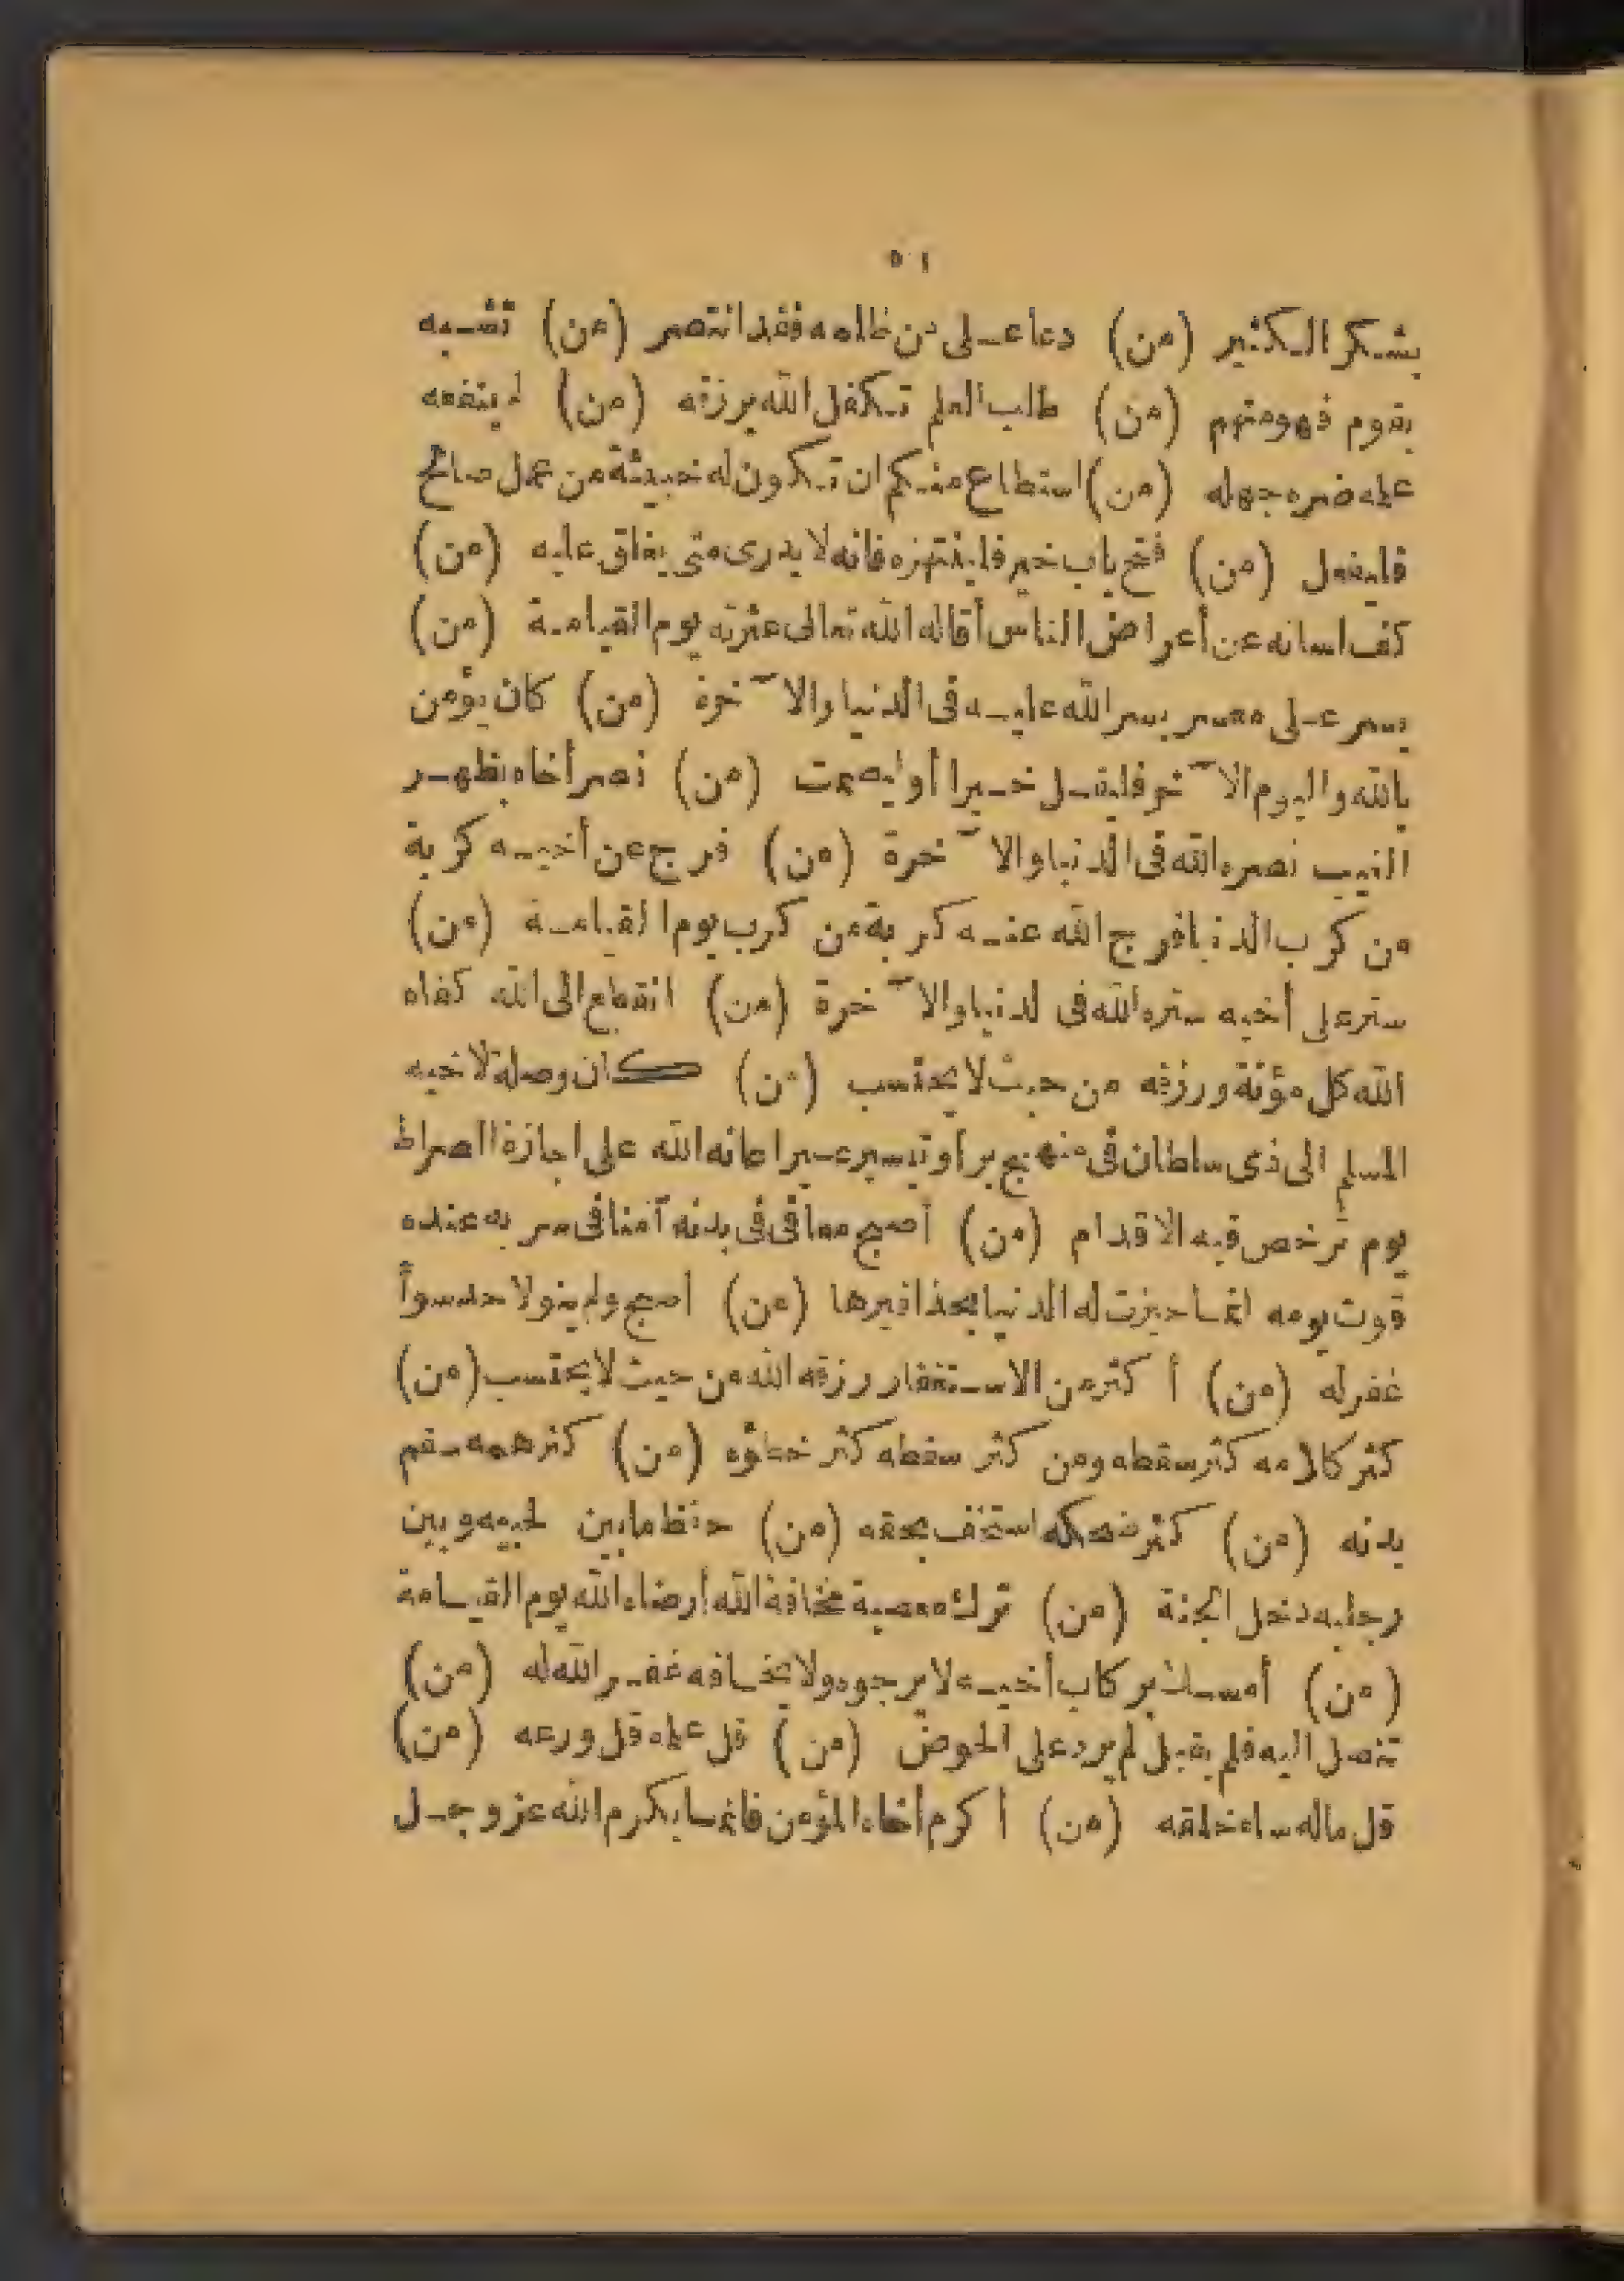 ٥١
يشكر الكثير (من) دعا على من ظلمه فقد انتصر (من) تشبه
بقوم فهو منهم (من) طلب العلم تكفل الله برزقه (من) لم ينفعه
علمه ضره جهله (من) استطاع منكم ان تكون له خبيئة من عمل صالح
فليفعل (من) فتح باب خير فلينتهزه فانه لا يدرى متى يغلق عليه (من)
كف لسانه عن أعراض الناس أقاله الله تعالى عثرته يوم القيامة (من)
يسر على معسر يسر الله عليه فى الدنيا والآخرة (من) كان يؤمن
بالله واليوم الآخر فليقل خيرا أو ليصمت (من) نصر أخاه بظهر
الغيب نصره الله فى الدنيا والآخرة (من) فرج عن أخيه كربة
من كرب الدنيا فرج الله عنه كربة من كرب يوم القيامة (من)
ستر على أخيه ستره الله فى لدنيا والآخرة (من) انقطع الى الله كفاه
الله كل مؤنة ورزقه من حيث لا يحتسب (من) كان وصلة لاخيه
المسلم الى ذى سلطان فى منهج بر أو تيسير عسير اعانه الله على اجازة الصراط
يوم تدحض فيه الاقدام (من) أصبح معافى فى بدنه آمنا فى سربه عنده
قوت يومه انما حيزت له الدنيا بحذافيرها (من) اصبح ولم ينو لاحد سوأ
غفر له (من) أكثر من الاستغفار رزقه الله من حيث لا يحتسب (من)
كثر كلامه كثر سقطه ومن كثر سقطه كثر خطؤه (من) كثر همه سقم
بدنه (من) كثر ضحكه استخف بحقه (من) حفظ ما بين لحييه وبين
رجليه دخل الجنة (من) ترك معصية مخافة الله أرضاه الله يوم القيامة
(من) أمسك بركاب أخيه لا يرجوه ولا يخافه غفر الله له (من)
تنصل اليه فلم يقبل لم يرد على الحوض (من) قل علمه قل ورعه (من)
قل ماله ساء خلقه (من) أكرم أخاه المؤمن فانما يكرم الله عز وجل